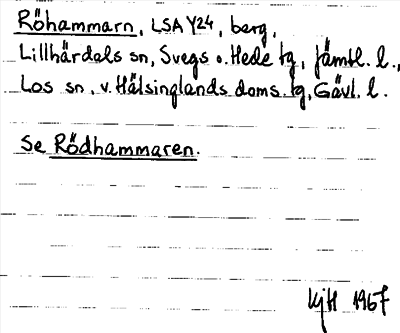 Röhammarn, LSA Y24, berg,
Lillhärdals sn, Svegs o. Hede tg, Jämtl. l.,
Los sn, v. Hälsinglands doms. tg, Gävl. l.
Se Rödhammaren.
KjH 1967